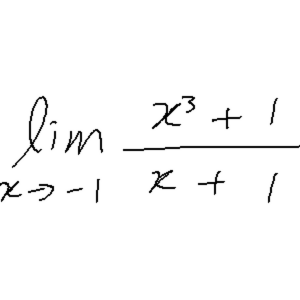 lim x→-1 (x³ + 1)/(x + 1)